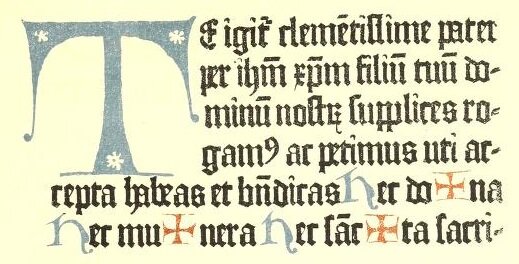 TE igit᷑ clemētissime pater
per ihm̄ xp̄m filiū tuū do-
minū nostrꝝ supplices ro-
gamꝰ ac petimus uti ac-
cepta habeas et bn̄dicas hec do ✠ na
hec mu ✠ nera hec sāc ✠ ta sacri-